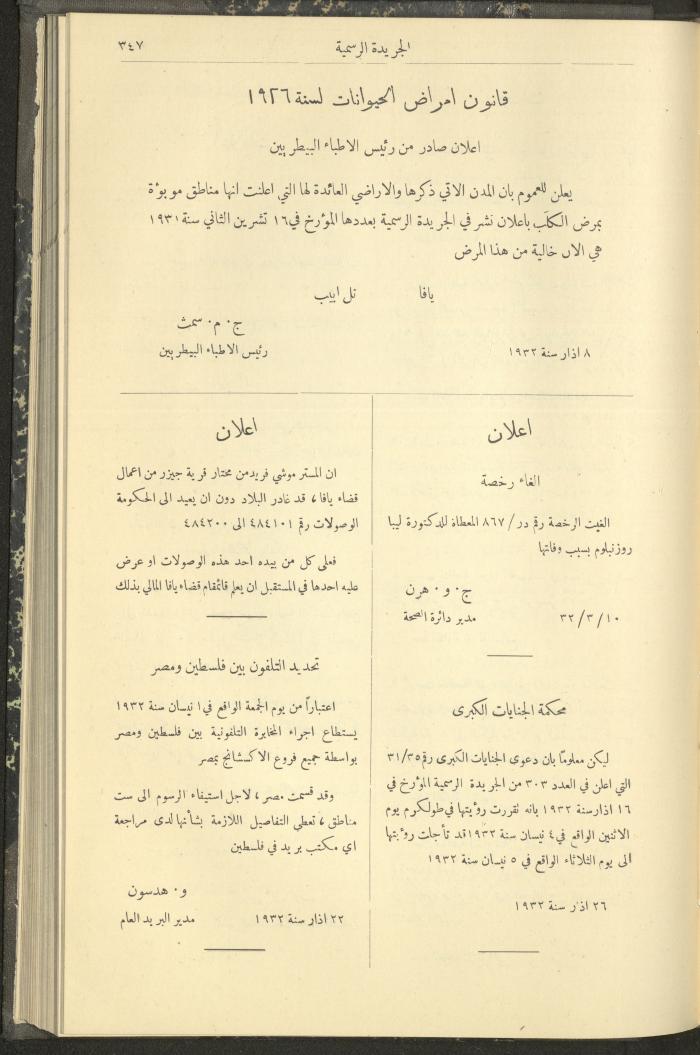 ٣٤٧
الجريدة الرسمية
قانون امراض الحيوانات لسنة ١٩٢٦
اعلان صادر من رئيس الاطباء البيطريين
يعلن للعموم بان المدن الاتي ذكرها والاراضي العائدة لها التي اعلنت انها مناطق موبوءة
بمرض الكلَب باعلان نشر في الجريدة الرسمية بعددها المؤرخ في ١٦ تشرين الثاني سنة ١٩٣١
هي الان خالية من هذا المرض
يافا تل ابيب
ج٠ م٠ سمث
٨ اذار سنة ١٩٣٢ رئيس الاطباء البيطريين
اعلان
الغاء رخصة
الغيت الرخصة رقم در/٨٦٧ المعطاة للدكتورة ليبا
روزنبلوم بسبب وفاتها
ج٠ و٠ هرن
١٠/٣/٣٢ مدير دائرة الصحة
محكمة الجنايات الكبرى
ليكن معلوماً بان دعوى الجنايات الكبرى رقم ٣١/٣٥
التي اعلن في العدد ٣٠٣ من الجريدة الرسمية المؤرخ في
١٦ اذار سنة ١٩٣٢ بانه تقررت رؤيتها في طولكرم يوم
الاثنين الواقع في ٤ نيسان سنة ١٩٣٢ قد تأجلت رؤيتها
الى يوم الثلاثاء الواقع في ٥ نيسان سنة ١٩٣٢
٢٦ اذار سنة ١٩٣٢
اعلان
ان المستر موشي فريدمن مختار قرية جيزر من اعمال
قضاء يافا، قد غادر البلاد دون ان يعيد الى الحكومة
الوصولات رقم ٤٨٤١٠١ الى ٤٨٤٢٠٠
فعلى كل من بيده احد هذه الوصولات او عرض
عليه احدها في المستقبل ان يعلم قائمقام قضاء يافا المالي بذلك
تحديد التلفون بين فلسطين ومصر
اعتباراً من يوم الجمعة الواقع في ١ نيسان سنة ١٩٣٢
يستطاع اجراء المخابرة التلفونية بين فلسطين ومصر
بواسطة جميع فروع الاكسشانج بمصر
وقد قسمت مصر، لاجل استيفاء الرسوم الى ست
مناطق، تعطى التفاصيل اللازمة بشأنها لدى مراجعة
اي مكتب بريد في فلسطين
و٠ هدسون
٢٢ اذار سنة ١٩٣٢ مدير البريد العام